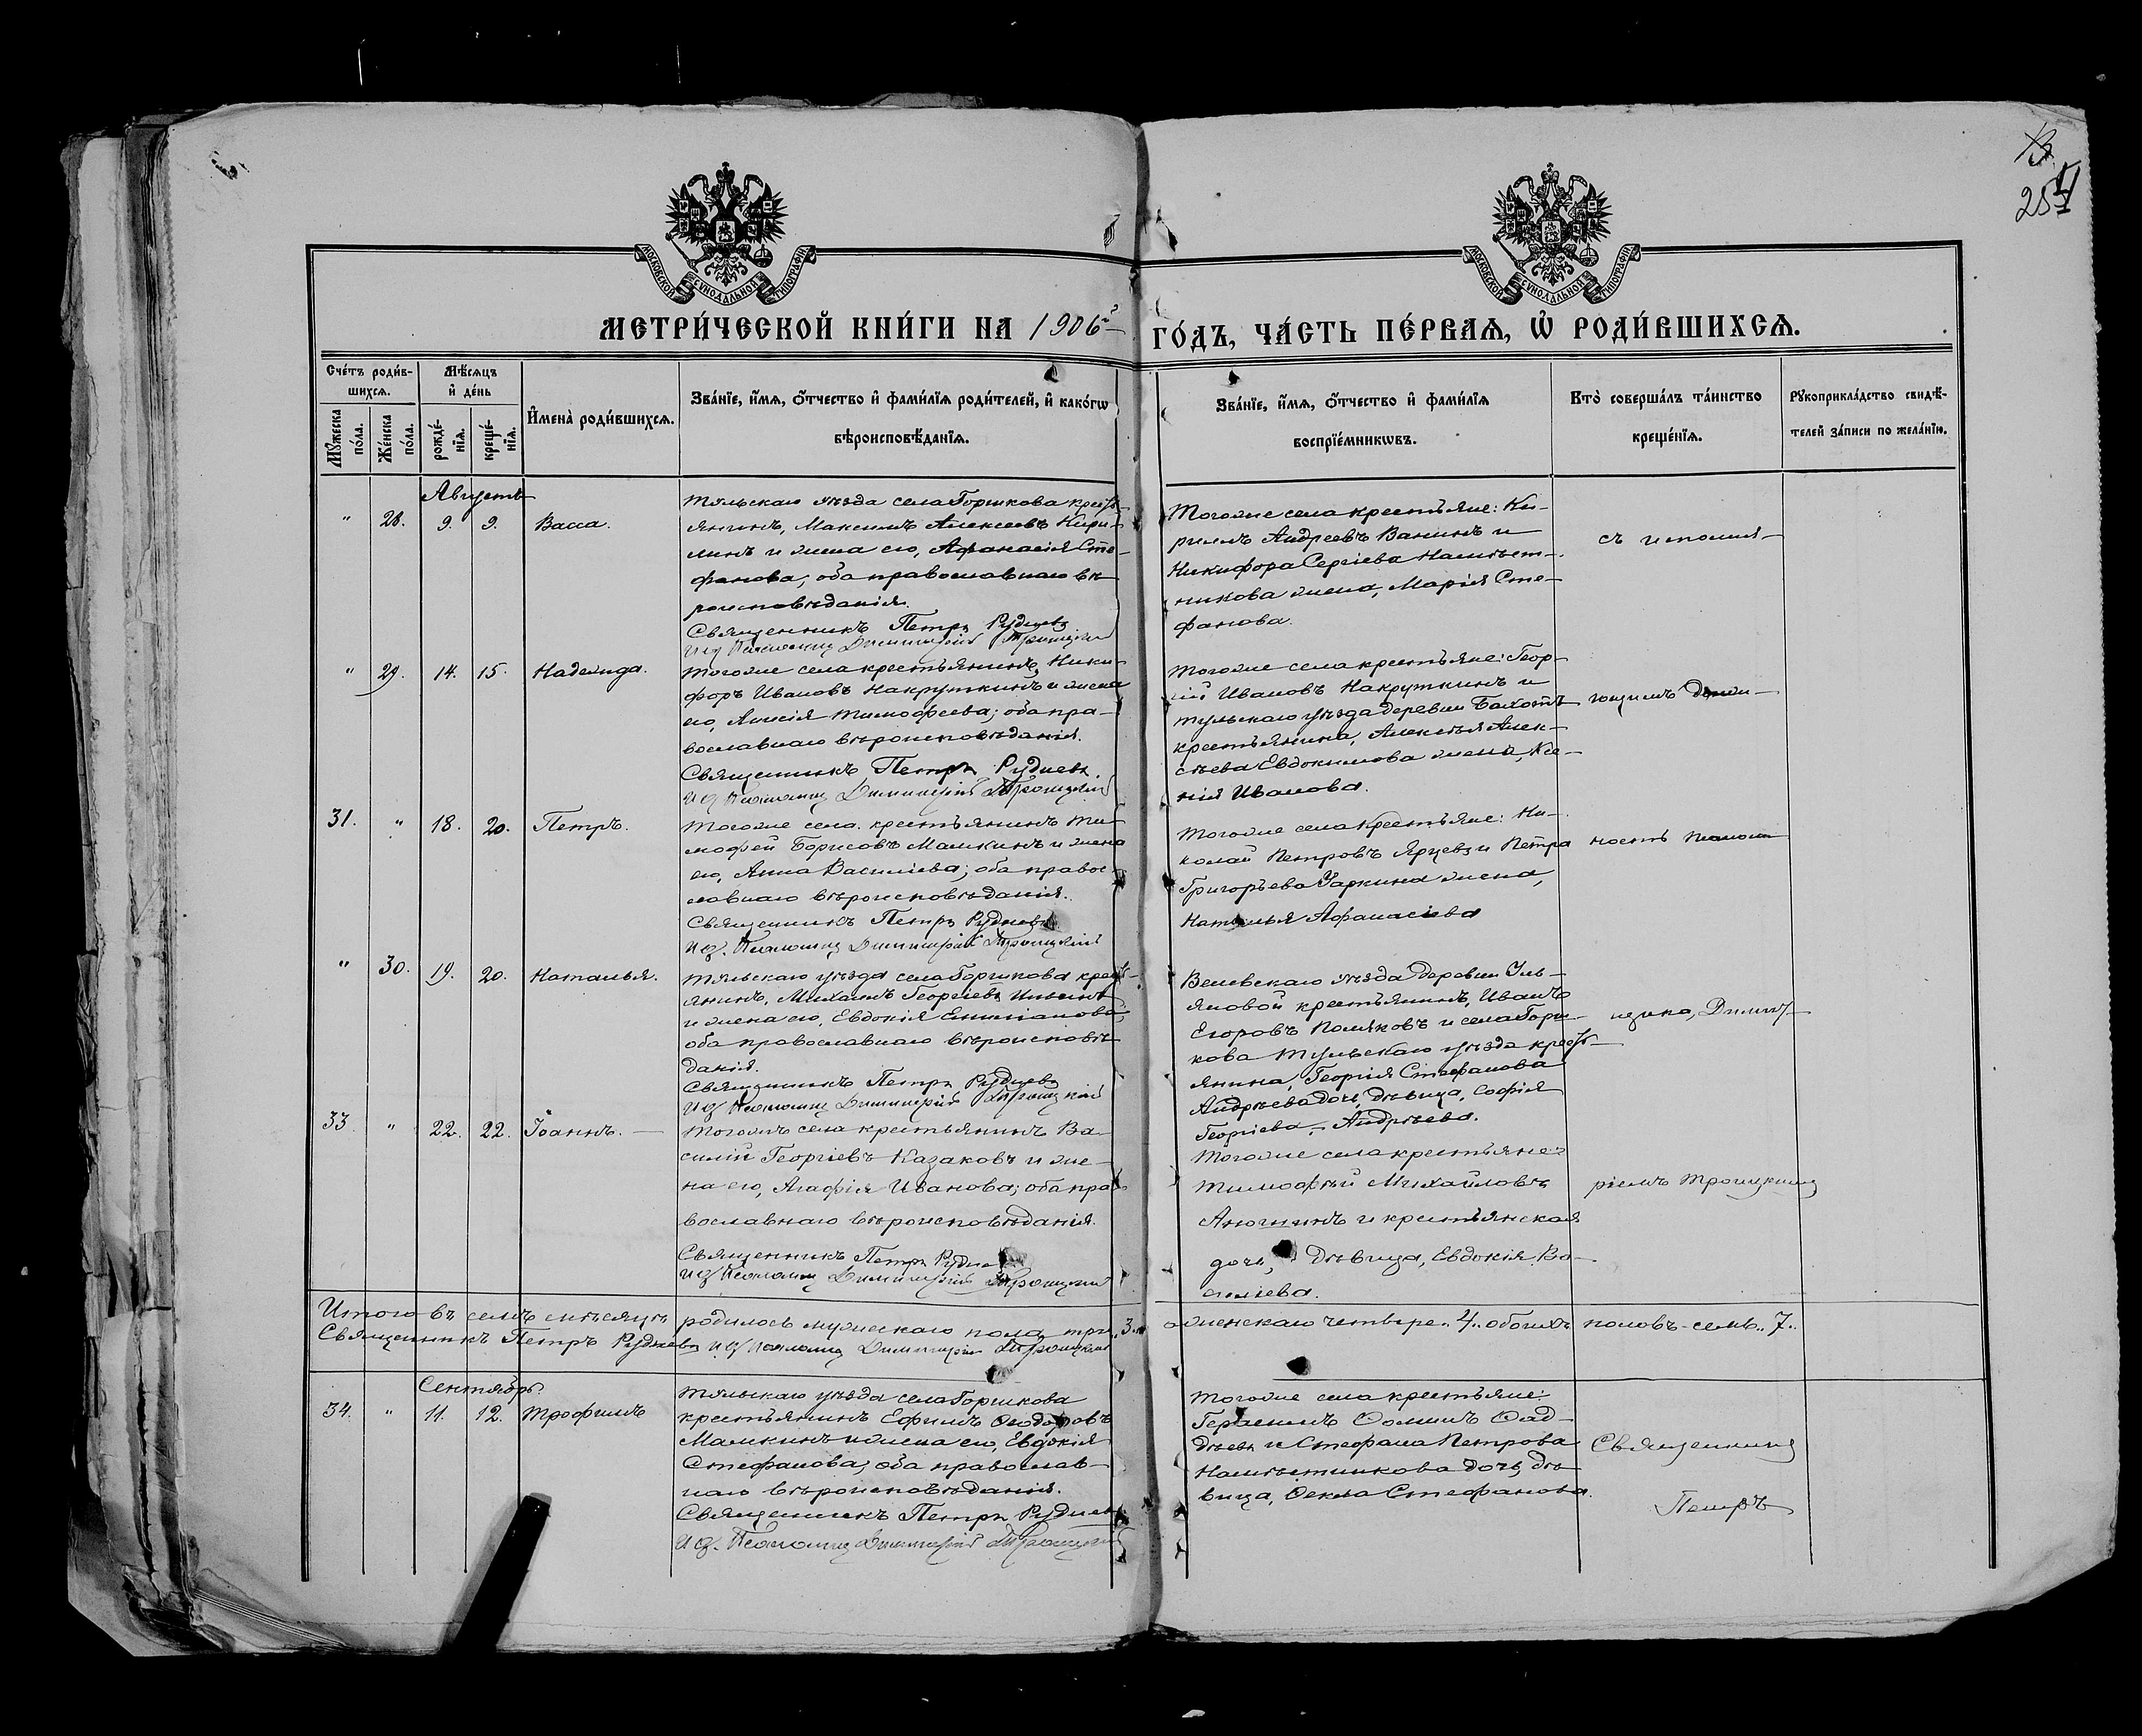 МОСКОВСКОЙ СУНОДАЛЬНОЙ ТИПОГРАФІИ
МОСКОВСКОЙ СУНОДАЛЬНОЙ ТИПОГРАФІИ
254
МЕТРИ́ЧЕСКОЙ КНИ́ГИ НА 1906 ГО́ДЪ, ЧА́СТЬ ПЕ́РВАѦ, Ѽ РОДИ́ВШИХСѦ.
Сче́тъ роди́в-
шихсѧ.
Мꙋжеска по́ла.
Же́нска по́ла.
Мѣ́сѧцъ
и҆ де́нь
рожде́-
нїѧ.
креще́-
нїѧ.
И҆мена̀ роди́вшихсѧ.
Зва́нїе, и҆́мѧ, ѻ҆́тчество и҆ фами́лїѧ роди́телей, и҆ како́гѡ
вѣроисповѣ́данїѧ.
Зва́нїе, и҆́мѧ, ѻ҆́тчество и҆ фами́лїѧ
воспрїе́мникѡвъ.
Кто̀ соверша́лъ та́инство
креще́нїѧ.
Рꙋкоприкла́дство свидѣ́-
телей за́писи по жела́нїю.
Августъ
" 28. 9. 9. Васса.
Тульскаго уѣзда села Горшкова крест-
янинъ, Максимъ Алексеевъ Кири-
линъ и жена его, Афанасія Сте-
фанова; оба православнаго вѣ-
роисповѣданія.
Священникъ Петръ Рудневъ
И д Псаломщ Димитрій Троицкій
Тогоже села крестьяне: Ки-
риллъ Андреевъ Ванинъ и
Никифора Сергіева Намѣст-
никова жена, Марія Сте-
фанова.
съ исполня-
" 29. 14. 15. Надежда.
Тогоже села крестьянинъ, Ники-
форъ Ивановъ Накруткинъ и жена
его, Анисія Тимофеева; оба пра-
вославнаго вѣроисповѣданія.
Священникъ Петръ Рудневъ.
И д Псаломщ Димитрій Троицкій
Тогоже села крестьяне: Геор-
гій Ивановъ Накруткинъ и
Тульскаго уѣзда деревни
крестьянина, Алексѣя Алек-
сѣева Евдокимова жена, Ксе-
нія Иванова.
ющимъ долж-
31. " 18. 20. Петръ.
Тогоже села крестьянинъ Ти-
мофей Борисовъ Малкинъ и жена
его, Анна Василіева; оба правос-
лавнаго вѣроисповѣданія.
Священникъ Петръ Рудневъ
И д. Псаломщ Димитрій Троицкій
Тогоже села крестьяне: Ни-
колай Петровъ Ярцевъ и Петра
Григорьева жена,
Наталья Афанасіева
ность псалом
" 30. 19. 20. Наталья.
Тульскаго уѣзда села Горшкова крест-
янинъ, Михаилъ Георгіевъ Ильинъ
и жена его, Евдокія Емиліанова;
оба православнаго вѣроисповѣ-
данія.
Священникъ Петръ Рудневъ
И д Псаломщ Димитрій Троицкій
уѣзда деревни Уль-
яновой крестьянинъ, Иванъ
Егоровъ Поляковъ и села Горш-
кова Тульскаго уѣзда крест-
янина, Георгія Стефанова
Андрѣева дочь, дѣвица, Софія
Георгіева - Андрѣева.
щика, Димит-
33 " 22. 22. Іоаннъ.
Тогожъ села крестьянинъ Ва-
силій Георгіевъ Казаковъ и же-
на его, Агафія Иванова; оба пра-
вославнаго вѣроисповѣданія.
Священникъ Петръ Рудне
И д Псаломщ Димитрій Троицкій
Тогоже села крестьяне:
Тимофей Михайловъ
Анюнинъ и крестьянская
дочь, дѣвица, Евдокія Ва-
силіева.
ріемъ Троицкимъ
Итого въ семъ мѣсяцѣ родилось мужескаго пола три „3„ женскаго четыре „4„ обоихъ половъ - семь „7„
Священникъ Петръ Рудневъ И д Псаломщ Димитрій Троицкій
Сентябрь.
34. " 11. 12. Трофимъ
Тульскаго уѣзда села Горшкова
крестьянинъ Ефимъ Ѳеодоровъ
Малкинъ и жена его, Евдокія
Стефанова; оба православ-
наго вѣроисповѣданія.
Священникъ Петръ Рудневъ
И д. Псаломщ Димитрій Троицкій
Тогоже села крестьяне:
Герасимъ Ѳоминъ Ѳад-
дѣевъ и Стефана Петрова
Намѣстникова дочь, дѣ-
вица, Ѳекла Стефанова.
Священник
Петръ